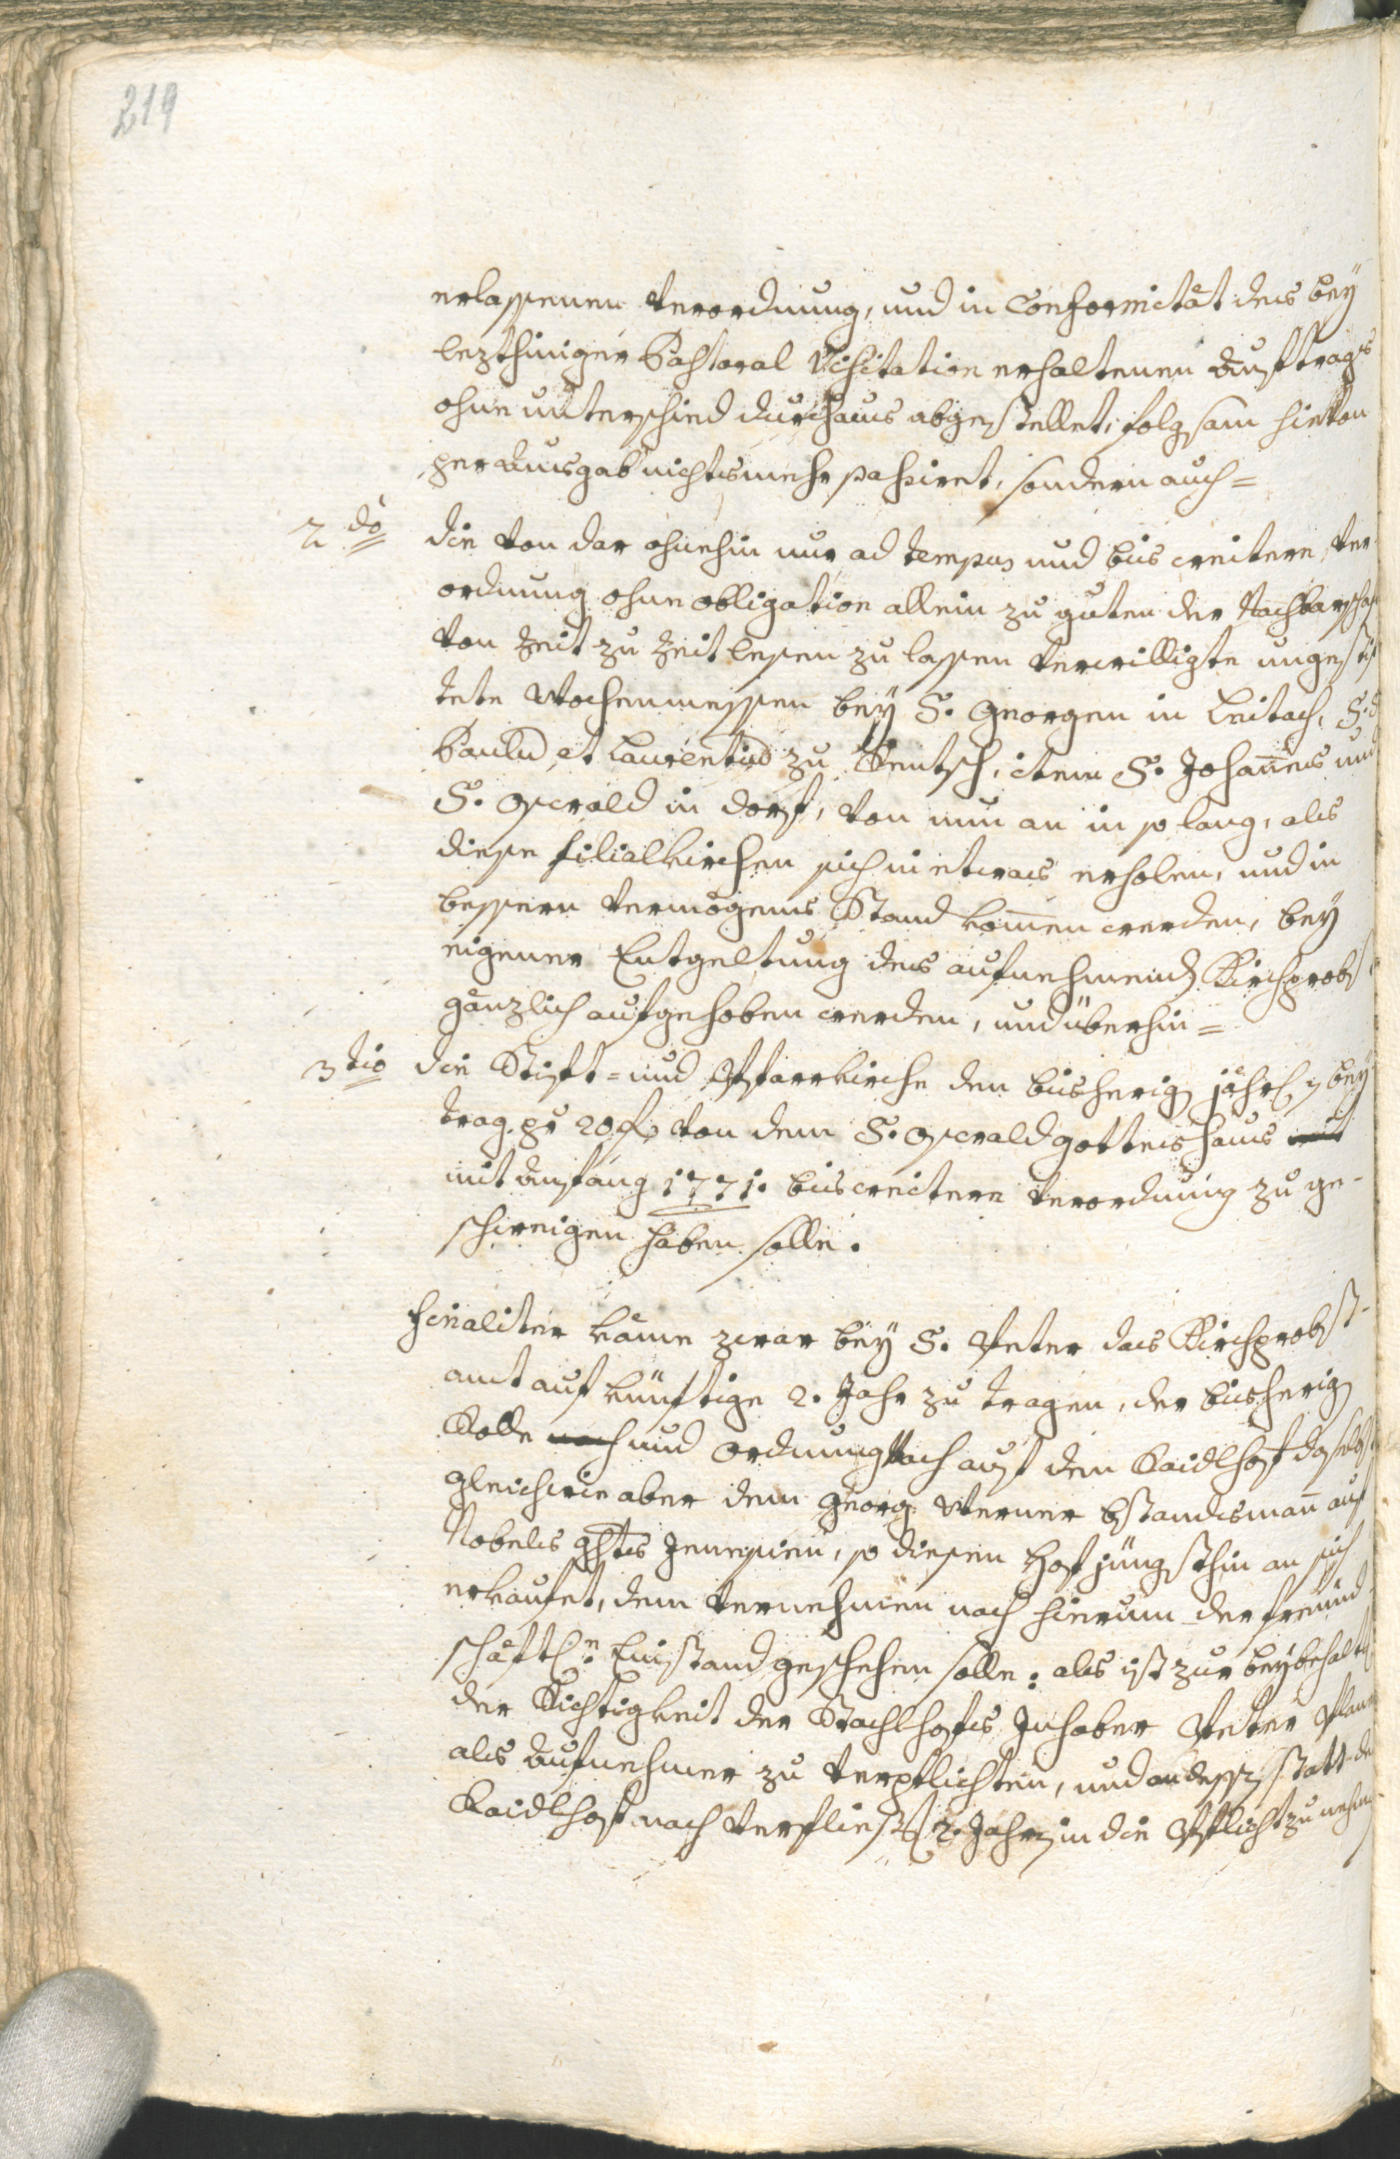 219
erlassenen Verordnung, und in Conformitæt des bey
lezthiniger Pastoral Visitation erhaltenen auftrags
ohne unterschied durchaus abgestellet, folgsam hievon
per ausgab nichts mehr passiret, sondern auch=
2do die von dar ohnehin nur ad tempus und bis weitere Ver-
ordnung ohne obligation allein zu guten der Nachbarschaft
von Zeit zu Zeit lesen zu lassen verwilligte ungestif
tete Wochenmessen bey S. Georgen in Leitach, S.
Pauln et Laurentio zu Rentsch, item S. Johannes und
S. Oswald in dorf, von nun an in so lang, als
diese filialkirchen sich in etwas erholen, und in
bessern Vermögens Stand kommen werden, bey
eigener Entgeltung des aufnehmend Kirchprobst
gänzlich aufgehoben werden, und überhin=
3tio die Stift= und Pfarrkirche den bisherig jährl. bey
trag pr 20 f. von dem S. Oswald gotteshaus
mit anfang 1771. bis weitere Verordnung zu ge-
schweigen haben solle.
Finaliter käme zwar bey S. Peter das Kirchprobst-
amt auf künftige 2. Jahr zu tragen, der bisherig
Rolle noch und Ordnung nach auf den Kaidlhof daselbst
gleichwie aber dem Georg Werner bstandsmann auf
Nobels ghts Jenesien, so diesen Hof jüngsthin an sich
erkaufet, dem vernehmen nach hierum der freund
schäftl. Einstand geschehen solle: als ist zur beybehalt
der Richtigkeit der Stachlhofs Inhaber Peter
als aufnehmer zu verpflichten, und an dessen statt de
Kaidlhof nach verfliess 2. Jahr in die Pflicht zu nehm